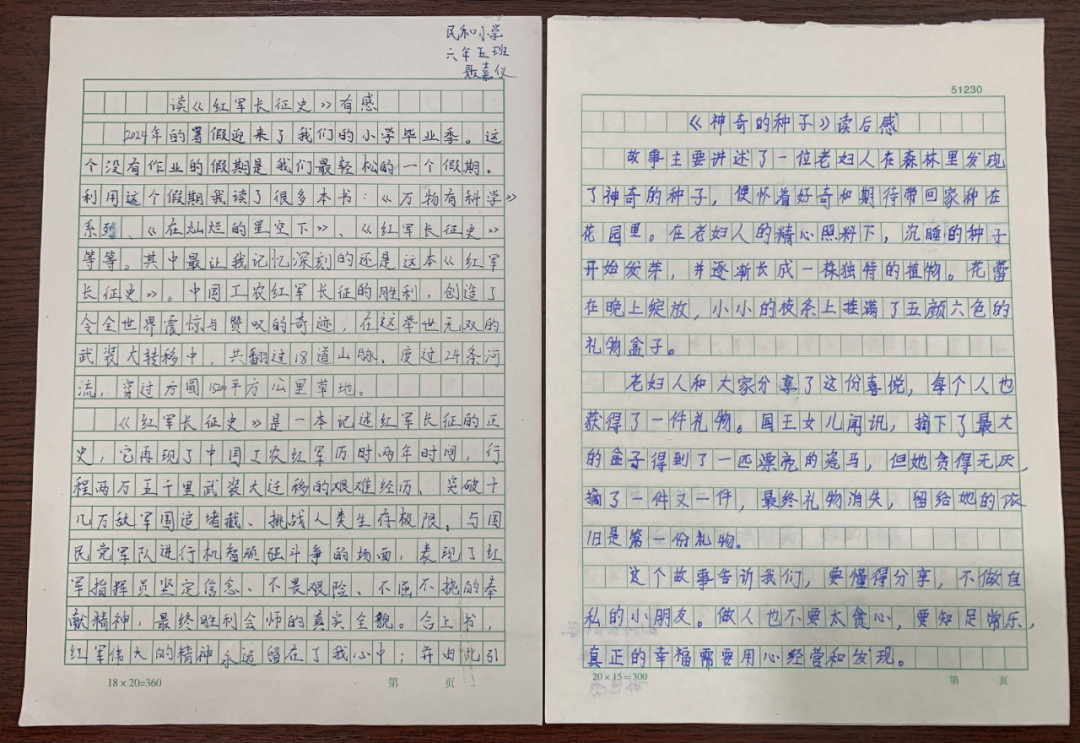 民和小学
六年五班
聂嘉仪
读《红军长征史》有感
2024年的署假迎来了我们的小学毕业季。这
个没有作业的假期是我们最轻松的一个假期.
利用这个假期我读了很多本书:《万物有科学》
系列、《在灿烂的星空下》、《红军长征史》
等等。其中最让我记忆深刻的还是这本《红军
长征史》。中国工农红军长征的胜利,创造了
令全世界震惊与赞叹的奇迹,在这举世无双的
武装大转移中,共翻过18道山脉、度过24条河
流,穿过方圆1520平方公里草地。
《红军长征史》是一本记述红军长征的正
史,它再现了中国工农红军历时两年时间,行
程两万五千里武装大迁移的艰难经历、突破十
几万敌军围追堵截、挑战人类生存极限,与国
民党军队进行机智顽强斗争的场面,表现了红
军指挥员坚定信念、不畏艰险、不屈不挠的奉
献精神,最终胜利会师的真实全貌。合上书,
红军伟大的精神永远留在了我心中;并由此引
18×20=360
第 页
51230
《神奇的种子》读后感
故事主要讲述了一位老妇人在森林里发现
了神奇的种子,便怀着好奇和期待带回家种在
花园里。在老妇人的精心照料下,沉睡的种子
开始发芽,并逐渐长成一株独特的植物。花蕾
在晚上绽放,小小的枝条上挂满了五颜六色的
礼物盒子。
老妇人和大家分享了这份喜悦,每个人也
获得了一件礼物。国王女儿闻讯,摘下了最大
的盒子得到了一匹漂亮的瓷马,但她贪得无厌,
摘了一件又一件,最终礼物消失,留给她的依
旧是第一份礼物。
这个故事告诉我们,要懂得分享,不做自
私的小朋友。做人也不要太贪心,要知足常乐,
真正的幸福需要用心经营和发现。
20×15=300
第 页